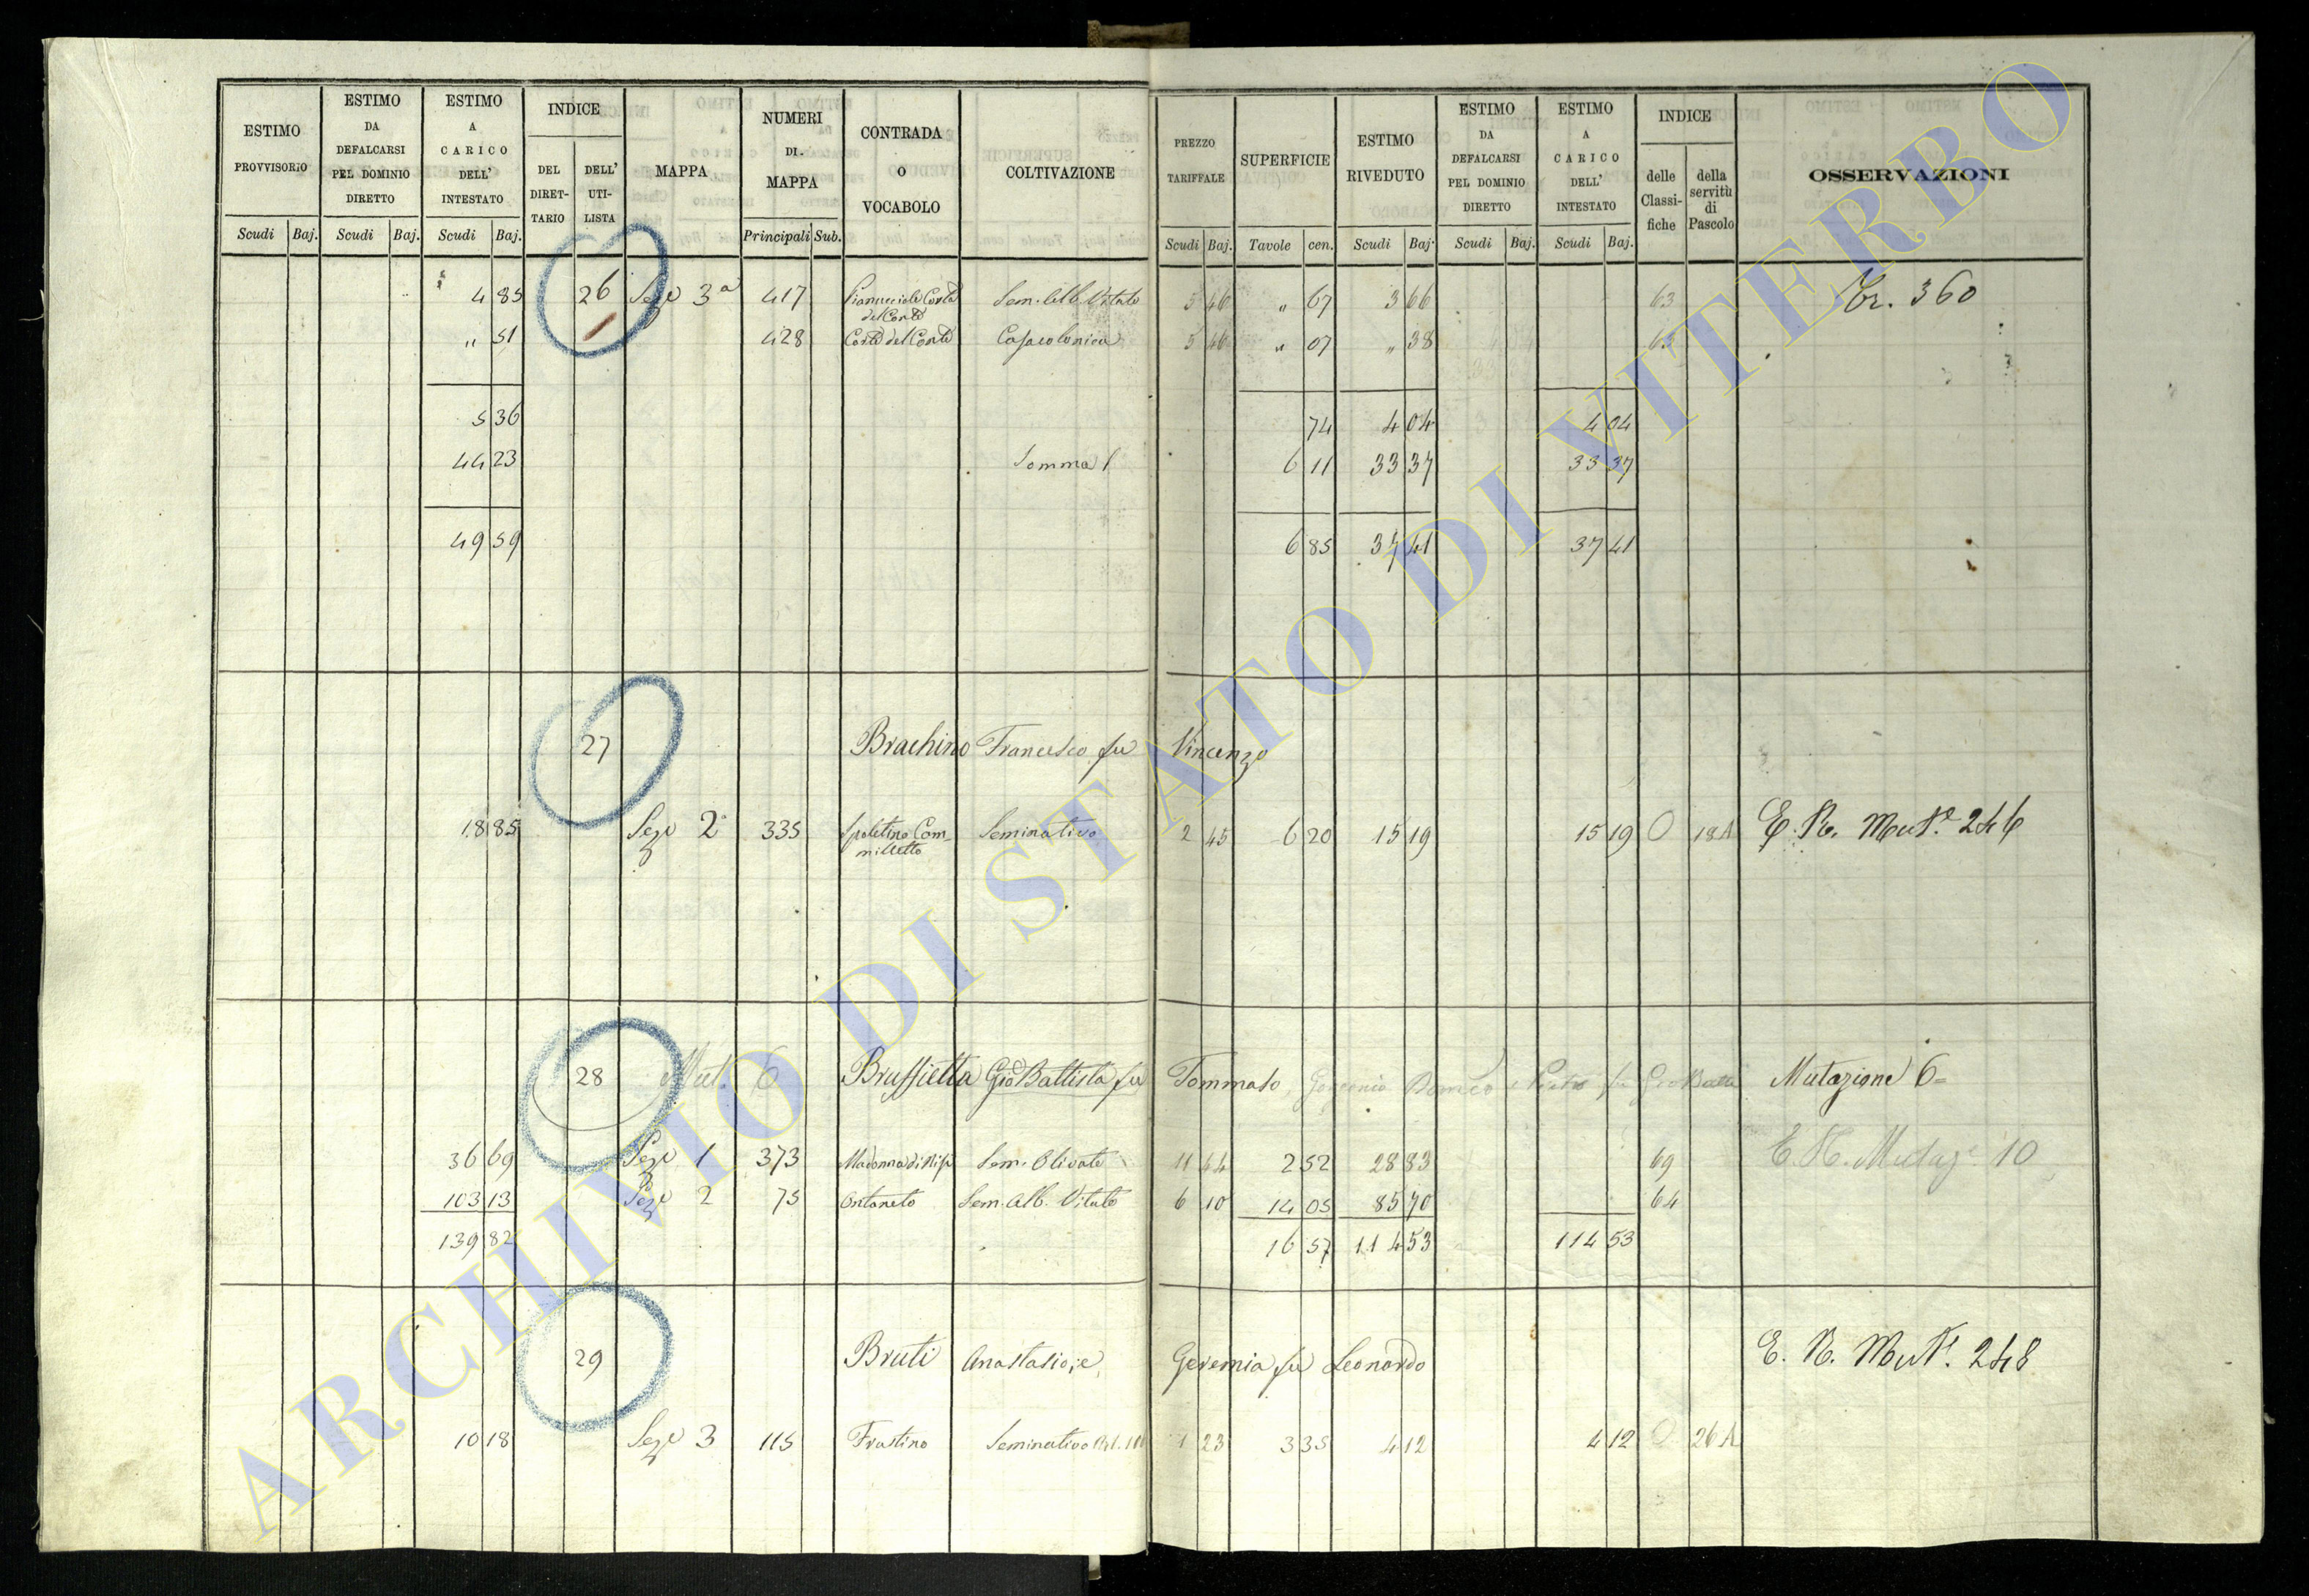 ESTIMO PROVVISORIO
ESTIMO DA DEFALCARSI PEL DOMINIO DIRETTO
ESTIMO A CARICO DELL' INTESTATO
INDICE
DEL DIRET-TARIO
DELL' UTI-LISTA
MAPPA
NUMERI DI MAPPA
CONTRADA O VOCABOLO
COLTIVAZIONE
PREZZO TARIFFALE
SUPERFICIE
ESTIMO RIVEDUTO
ESTIMO DA DEFALCARSI PEL DOMINIO DIRETTO
ESTIMO A CARICO DELL' INTESTATO
INDICE
delle Classi-fiche
della servitù di Pascolo
OSSERVAZIONI
Scudi Baj. Scudi Baj. Scudi Baj. Principali Sub. Scudi Baj. Tavole cen. Scudi Baj. Scudi Baj. Scudi Baj.
4 85 26 Seze 3a 417 Sem. Alb. Vitato 5 46 " 67 3 66 63 Vr. 360
" 51 428 Corte del Conte Casa colonica 5 46 " 07 " 38 63
5 36 74 4 04 4 04
44 23 Somma 6 11 33 37 33 37
49 59 6 85 37 41 37 41
27 Brachino Francesco fu Vincenzo
18 85 Seze 2a 335 Spoletino Com-
Seminativo 2 45 6 20 15 19 15 19 0 18A E. R. Mute 246
28 Mut. 6 Bruffietta Gio Battista fu Tommaso, Romeo e Pietro fu Gio Batta Mutazione 6=
36 69 Seze 1 373 Sem. Olivato 11 44 2 52 28 83 69 E. R. Mutaze 10
103 13 Seze 2 75 Ontaneto Sem. Alb. Vitato 6 10 14 05 85 70 64
139 82 16 57 114 53 114 53
29 Bruti Anastasio, e Geremia fu Leonardo E. R. Mute. 248
10 18 Seze 3 115 Frastino Seminativo 1 23 3 35 4 12 4 12 0 26A
ARCHIVIO DI STATO DI VITERBO